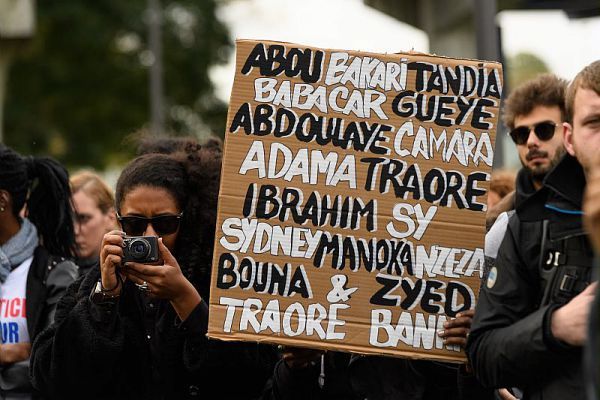 TICE
UR
ABOU BAKARI TANDIA
BABACAR GUEYE
ABDOULAYE CAMARA
ADAMA TRAORE
IBRAHIM SY
SYDNEY MANOKA NZEZA
BOUNA & ZYED
TRAORE BANN